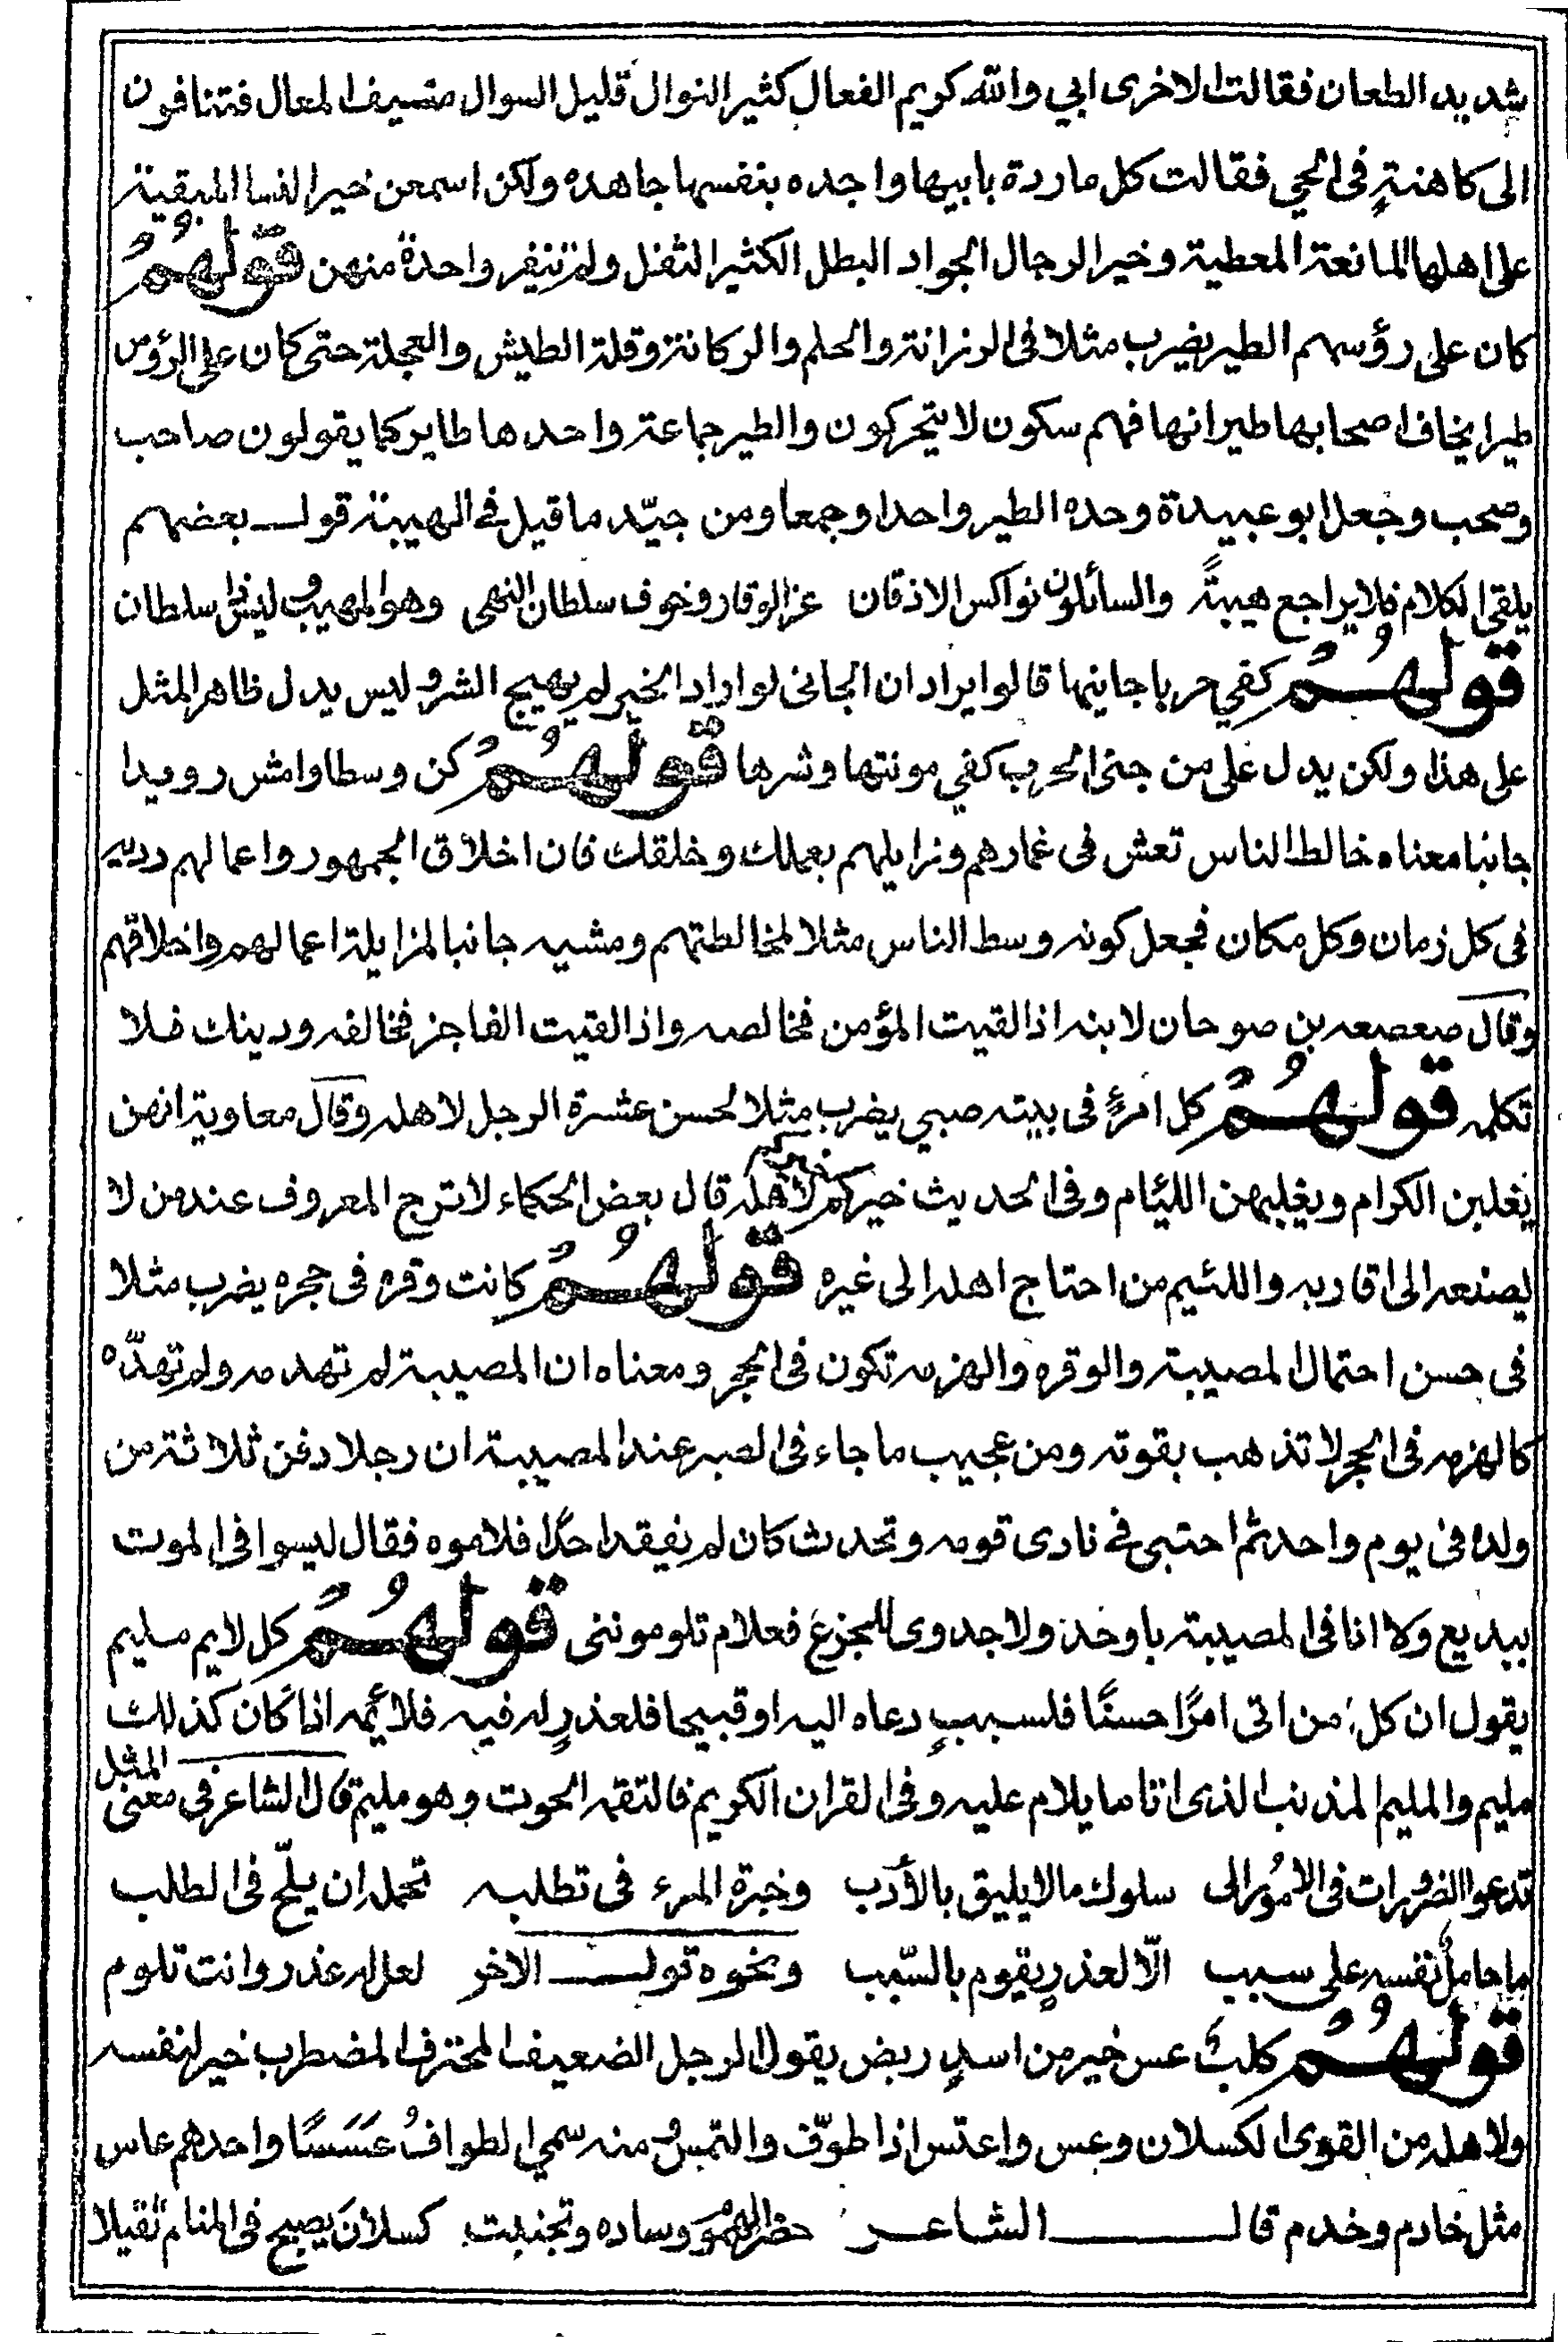 شديد الطعان فقالت الاخرى ابي والله كريم الفعال كثير النوال قليل السوال منيف المعال فتنافرن
الى كاهنةٍ فى الحي فقالت كل ماردة بابيها واجده بنفسها جاهده ولكن اسمعن خير النسا المبقية
على اهلها المانعة المعطية وخير الرجال الجواد البطل الكثير النفل ولم تنفر واحدة منهن قولهُمُ
كان على رؤسهم الطير يضرب مثلا فى الرزانة والحلم والركانة وقلة الطيش والعجلة حتى كان على الرؤس
طيرا يخاف اصحابها طيرانها فهم سكون لا يتحركون والطير جماعة واحدها طاير كما يقولون صاحب
وصحب وجعل ابو عبيدة وحده الطير واحدا وجمعا ومن جيّد ما قيل فى الهيبة قول بعضهم
يلقى الكلام فلا يراجع هيبةً والسائلون نواكس الاذقان عز الوقار وخوف سلطان النهى وهو المهيب وليس ذا سلطان
قولهُمُ كفي حربا جانيها قالوا يراد ان الجانى لو اراد الخير لم يهيج الشر وليس يدل ظاهر المثل
على هذا ولكن يدل على من جنى الحرب كفي مونتها وشرها قولهُمُ كن وسطا وامش رويدا
جانبا معناه خالط الناس تعش فى غمارهم وزايلهم بعملك وخلقك فان اخلاق الجمهور واعمالهم رديه
فى كل زمان وكل مكان فجعل كونه وسط الناس مثلا لمخالطتهم ومشيه جانبا لمزايلة اعمالهم واخلاقهم
وقال صعصعه بن صوحان لابنه اذا لقيت المؤمن فخالصه واذا لقيت الفاجر فخالفه ودينك فلا
تكلمه قولهُمُ كل امرءٍ فى بيته صبي يضرب مثلا لحسن عشرة الرجل لاهله وقال معاوية انهن
يغلبن الكرام ويغلبهن اللئيام وفى الحديث خيركم خيركم لاهله قال بعض الحكاء لا ترج المعروف عند من لا
يصنعه الى اقاربه واللئيم من احتاج اهله الى غيره قولهُمُ كانت وقره فى حجره يضرب مثلا
فى حسن احتمال المصيبة والوقره والهزمه تكون فى الحجر ومعناه ان المصيبة لم تهدمه ولم تهدّه
كالهزمه فى الحجر لا تذهب بقوته ومن عجيب ما جاء فى الصبر عند المصيبة ان رجلا دفن ثلاثة من
ولده فى يوم واحد ثم احتبى فى نادى قومه وتحدث كان لم يفقد احدًا فلاموه فقال ليسوا فى الموت
ببديع ولا انا فى المصيبة باوحد ولا جدوى للجزع فعلام تلوموننى قولهُمُ كل لايم مليم
يقول ان كل من اتى امرًا حسنًا فلسببٍ دعاه اليه او قبيحا فلعذرٍ له فيه فلائمه اذا كان كذلك
مليم والمليم المذنب الذى اتا ما يلام عليه وفى القران الكريم فالتقمه الحوت وهو مليم قال الشاعر في معنى المثل
تدعوا الضرورات فى الامُور الى سلوك ما لا يليق بالأدب وخبرة المرء فى تطلبه تحمله ان يلحّ فى الطلب
ما حاملٌ نفسه على سبب الّا لعذرٍ يقوم بالسّبب ونحوه قول الاخر لعل له عذر وانت تلوم
قولهُمُ كلبٌ عس خير من اسدٍ ربض يقول الرجل الضعيف المحترف المضطرب خير لنفسه
ولاهله من القوى الكسلان وعس واعتس اذا طوّف والتمس ومنه سمي الطوافُ عَسَسًا واحدهم عاس
مثل خادم وخدم قال الشاعر حضر الهمُوم وساده وتجنبت كسلان يصبح فى المنام ثقيلا